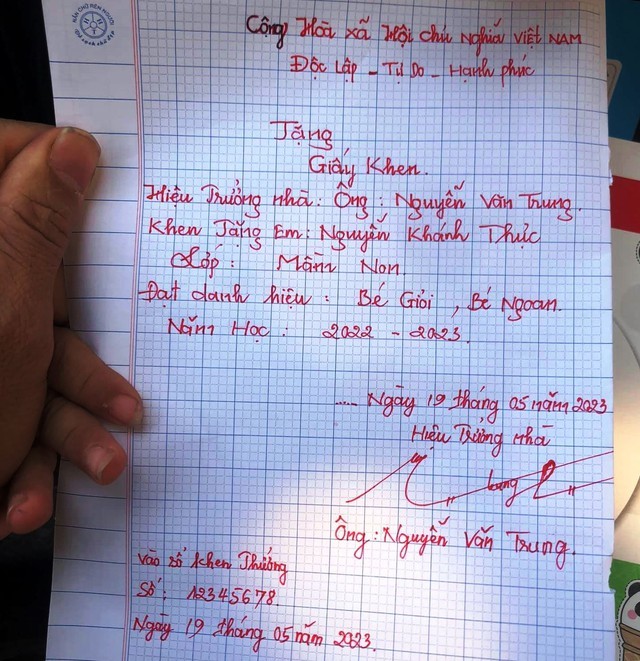 NẮN CHỮ RÈN NGƯỜI
Công Hoà xã Hội chủ nghĩa việt NAM
Độc Lập - Tự Do - Hạnh phúc
Tặng
Giấy Khen.
Hiệu Trưởng nhà: Ông: Nguyễn Văn Trung.
Khen Tặng Em: Nguyễn Khánh Thực
Lớp: Mầm Non.
Đạt danh hiệu: Bé Giỏi, Bé Ngoan.
Năm Học: 2022 - 2023.
..... Ngày 19 tháng 05 năm 2023
Hiệu Trưởng nhà
Ông: Nguyễn Văn Trung.
vào sổ khen Thưởng
Số: 12345678.
Ngày 19 tháng 05 năm 2023.